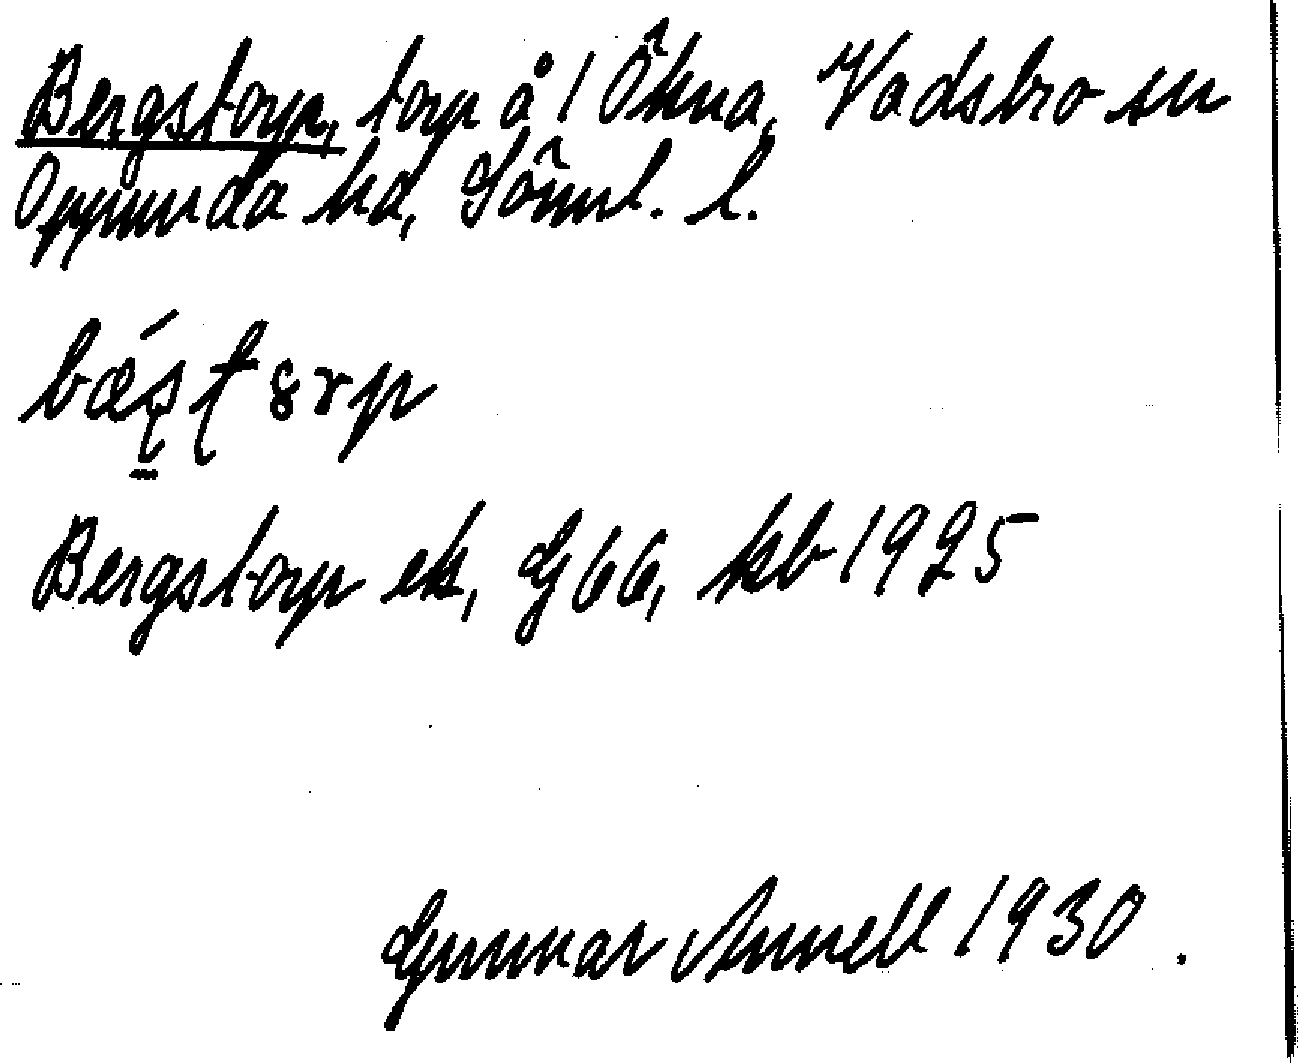 Bergstorp, torp å 1 Ökna, Vadsbro sn
Oppunda hd, Sörml. l.
Bergstorp ek, G66, kb 1925
Gunnar Annell 1930.